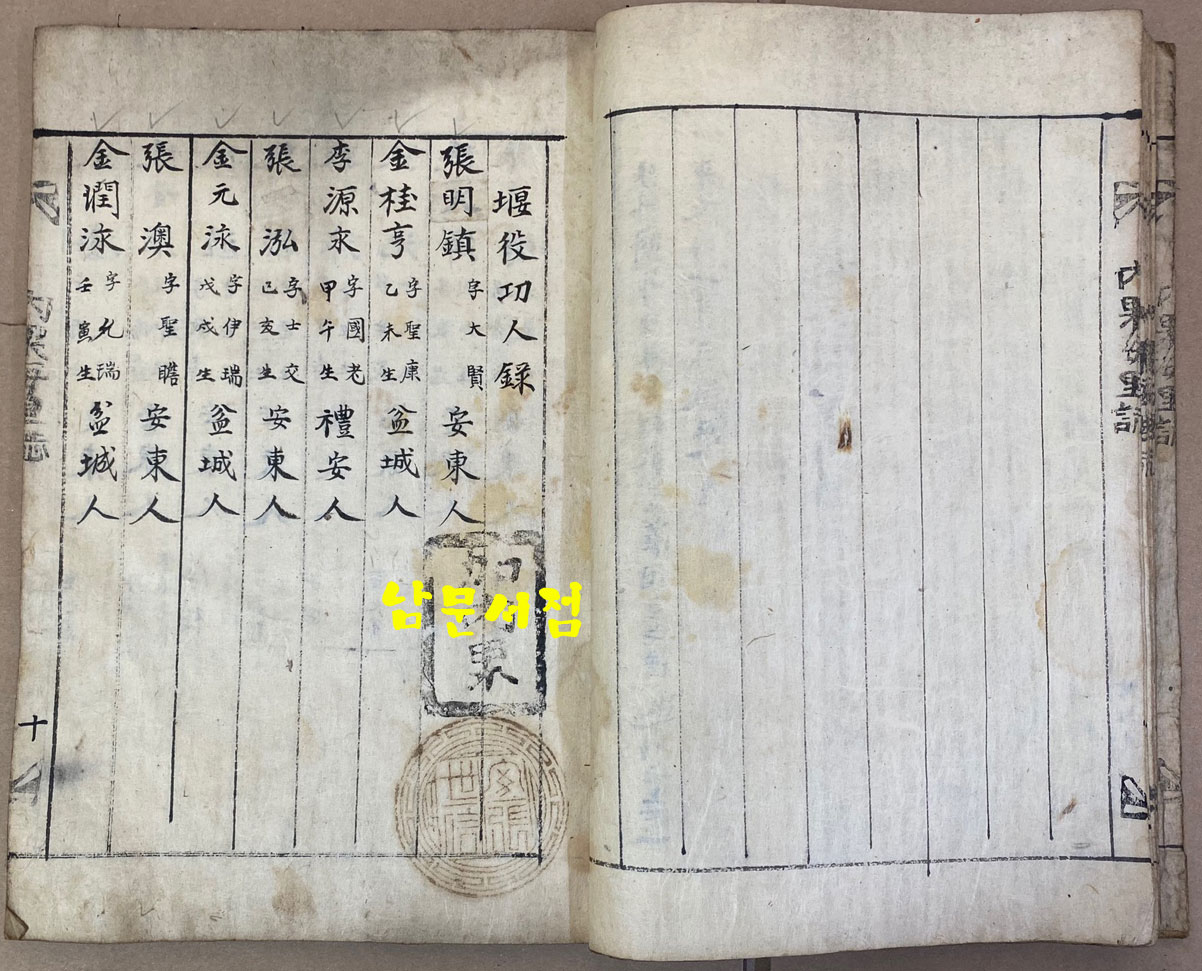 堰役功人錄
張明鎮 字大賢 安東人
金桂亨 字聖康 乙未生 盆城人
李源永 字國老 甲午生 禮安人
張泓 字士交 己亥生 安東人
金元泳 字伊瑞 戊戌生 盆城人
張澳 字聖瞻 安東人
金潤泳 字允瑞 壬寅生 盆城人
十
남문서점